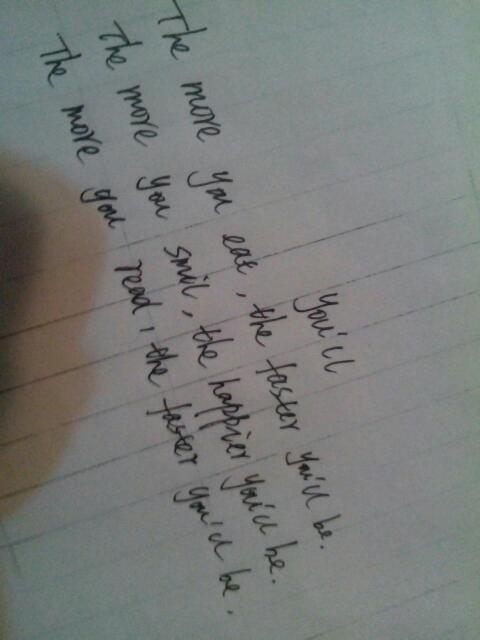 you'll
The more you eat, the faster you'll be.
The more you smil, the happier you'll be.
The more you read, the faster you'll be.